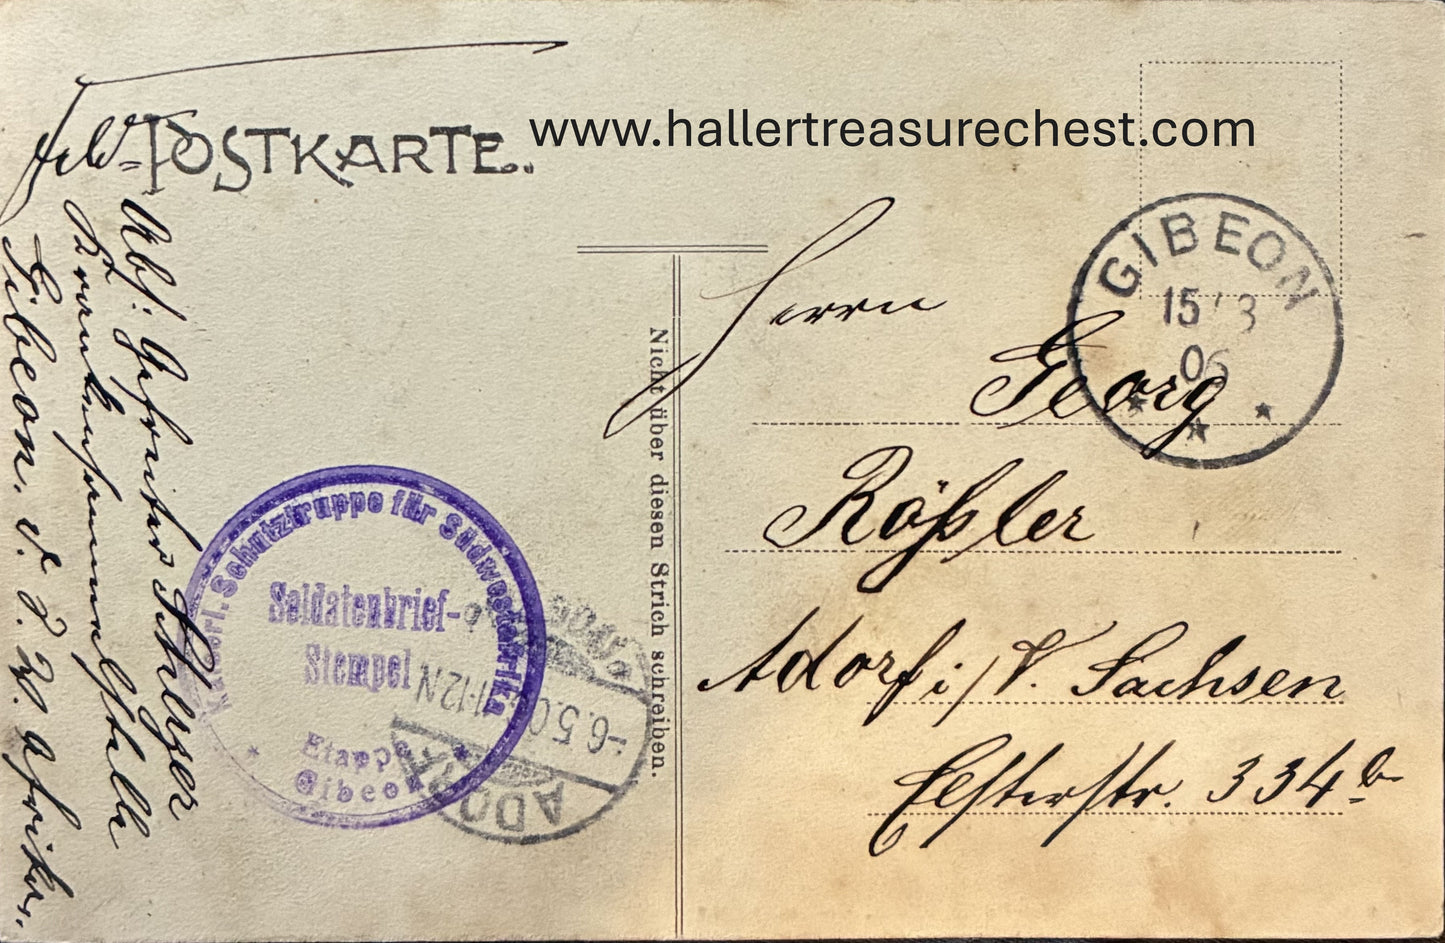 Feld-POSTKARTE.
www.hallertreasurechest.com
Abs: Gefreiter
Krankensammelstelle
Gibeon. d. S. W. Afrika.
Nicht über diesen Strich schreiben.
Herrn
Georg
Rößler
Adorf i/V. Sachsen
Elsterstr. 334 b
GIBEON
15/3
06
Kaiserl. Schutztruppe für Südwestafrika
Soldatenbrief-
Stempel
Etappe
Gibeon
ADORF
-6.5.0
11-12N